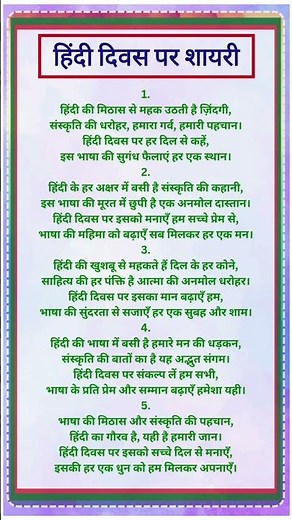 हिंदी दिवस पर शायरी
1.
हिंदी की मिठास से महक उठती है ज़िंदगी,
संस्कृति की धरोहर, हमारा गर्व, हमारी पहचान।
हिंदी दिवस पर हर दिल से कहें,
इस भाषा की सुगंध फैलाएं हर एक स्थान।
2.
हिंदी के हर अक्षर में बसी है संस्कृति की कहानी,
इस भाषा की मूरत में छुपी है एक अनमोल दास्तान।
हिंदी दिवस पर इसको मनाएँ हम सच्चे प्रेम से,
भाषा की महिमा को बढ़ाएँ सब मिलकर हर एक मन।
3.
हिंदी की खुशबू से महकते हैं दिल के हर कोने,
साहित्य की हर पंक्ति है आत्मा की अनमोल धरोहर।
हिंदी दिवस पर इसका मान बढ़ाएँ हम,
भाषा की सुंदरता से सजाएँ हर एक सुबह और शाम।
4.
हिंदी की भाषा में बसी है हमारे मन की धड़कन,
संस्कृति की बातों का है यह अद्भुत संगम।
हिंदी दिवस पर संकल्प लें हम सभी,
भाषा के प्रति प्रेम और सम्मान बढ़ाएँ हमेशा यही।
5.
भाषा की मिठास और संस्कृति की पहचान,
हिंदी का गौरव है, यही है हमारी जान।
हिंदी दिवस पर इसको सच्चे दिल से मनाएँ,
इसकी हर एक धुन को हम मिलकर अपनाएँ।